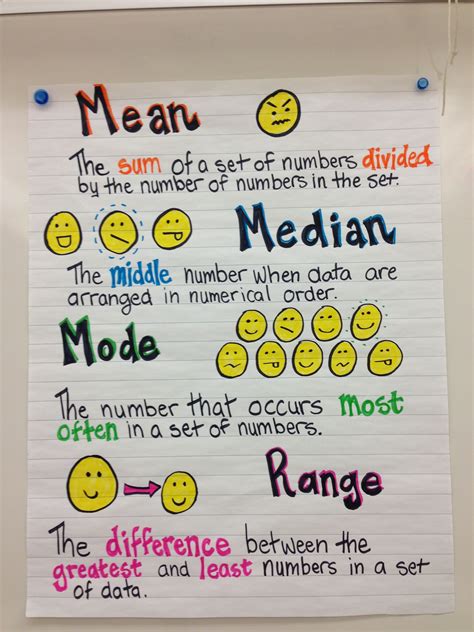 Mean
The sum of a set of numbers divided
by the number of numbers in the set.
Median
The middle number when data are
arranged in numerical order.
Mode
The number that occurs most
often in a set of numbers.
Range
The difference between the
greatest and least numbers in a set
of data.